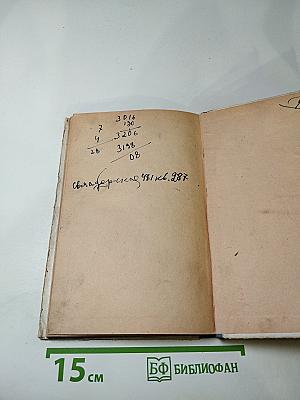 3016
7 190
4 3206
28 3198
08
кв. 287.
15 см
БФ БИБЛИОФАН